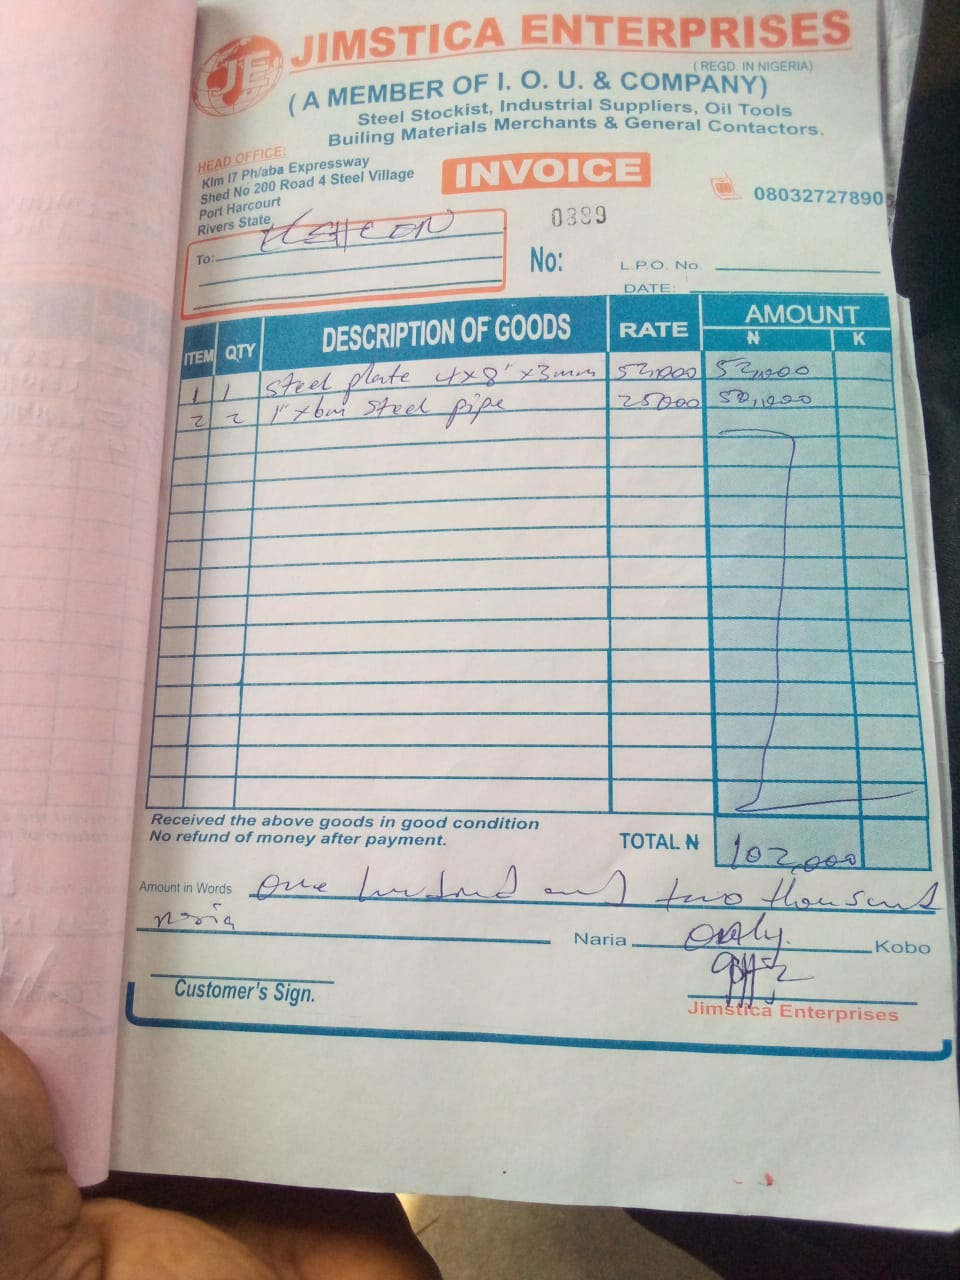 JE
JIMSTICA ENTERPRISES
(REGD. IN NIGERIA)
(A MEMBER OF I. O. U. & COMPANY)
Steel Stockist, Industrial Suppliers, Oil Tools
Builing Materials Merchants & General Contactors.
HEAD OFFICE:
Klm 17 Ph/aba Expressway
Shed No 200 Road 4 Steel Village
Port Harcourt
Rivers State
INVOICE
08032727890
0389
To:
No:
L.P.O. No.
DATE:
ITEM QTY DESCRIPTION OF GOODS RATE AMOUNT
₦ K
1 1 Steel plate 4x8" x3mm 52,000 52,000
2 2 1" x6m steel pipe 25,000 50,000
Received the above goods in good condition
No refund of money after payment.
TOTAL ₦ 102,000
Amount in Words one hundred and two thousand
naria Naria only. Kobo
Customer's Sign.
Jimstica Enterprises